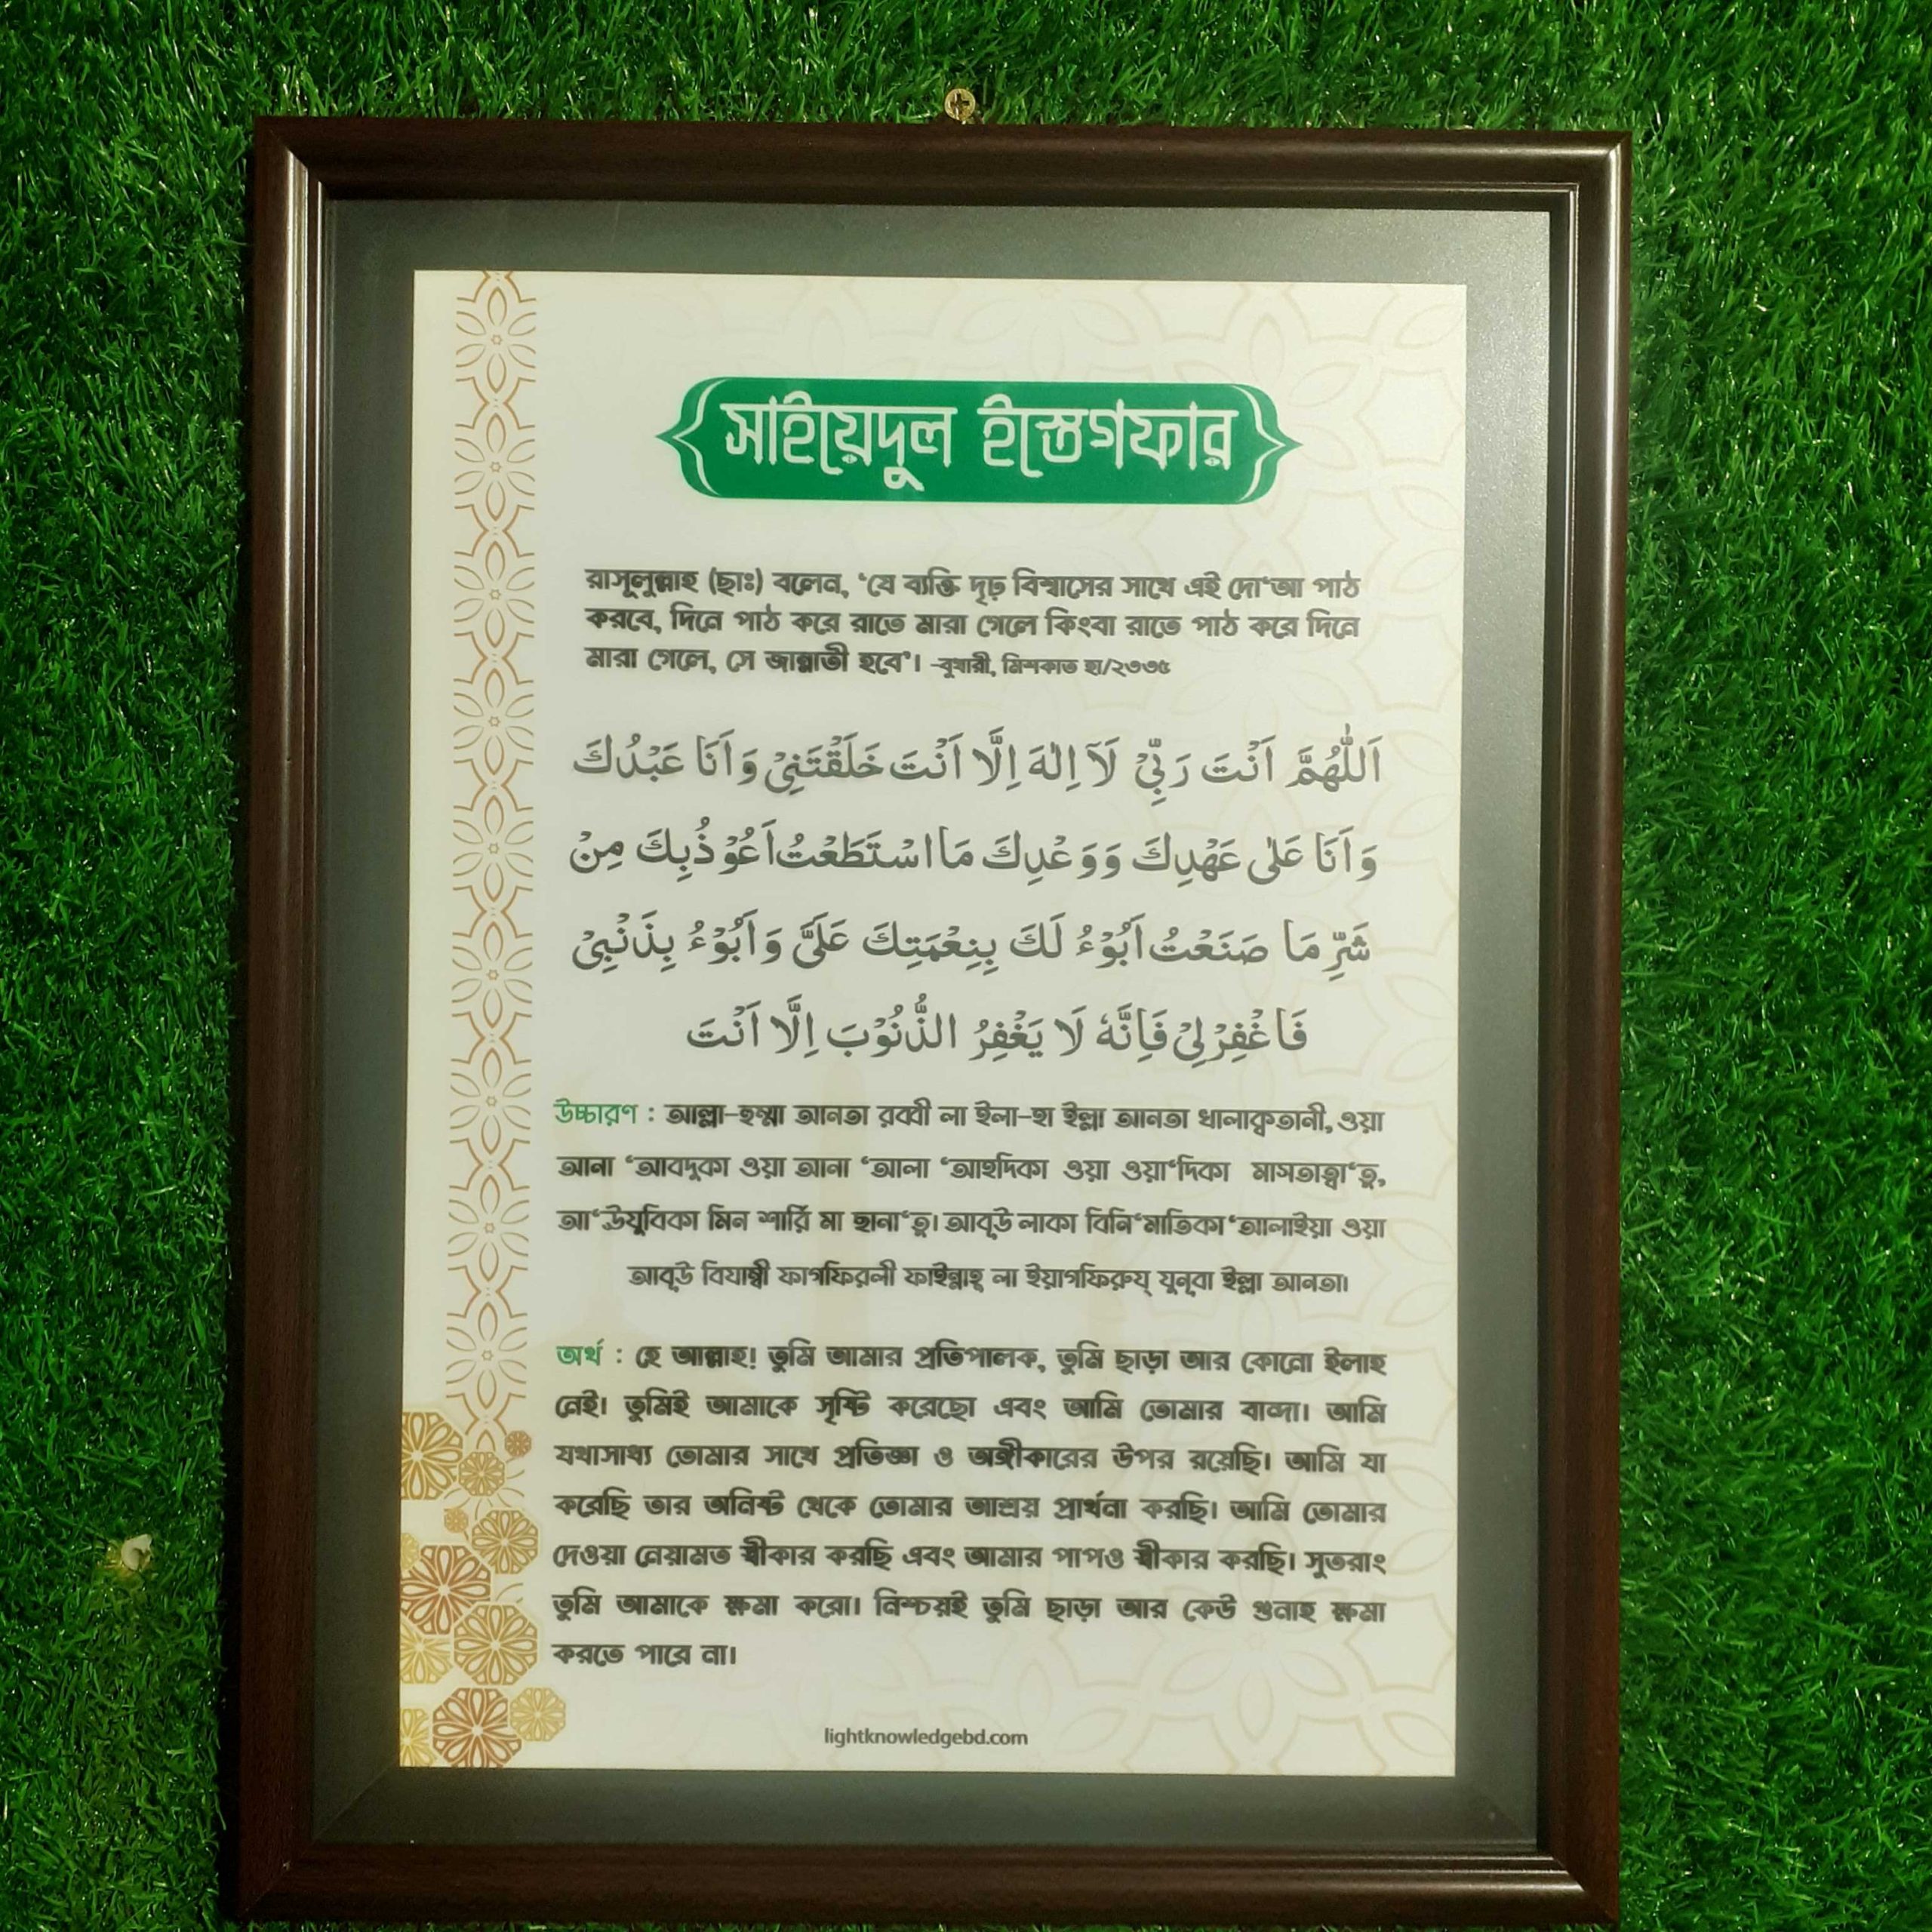 সাইয়েদুল ইস্তেগফার
রাসূলুল্লাহ (ছাঃ) বলেন, ‘যে ব্যক্তি দৃঢ় বিশ্বাসের সাথে এই দো‘আ পাঠ
করবে, দিনে পাঠ করে রাতে মারা গেলে কিংবা রাতে পাঠ করে দিনে
মারা গেলে, সে জান্নাতী হবে’। -বুখারী, মিশকাত হা/২৩৩৫
اَللّٰهُمَّ اَنْتَ رَبِّيْ لَآ اِلٰهَ اِلَّا اَنْتَ خَلَقْتَنِيْ وَاَنَا عَبْدُكَ
وَاَنَا عَلٰى عَهْدِكَ وَوَعْدِكَ مَا اسْتَطَعْتُ اَعُوْذُبِكَ مِنْ
شَرِّ مَا صَنَعْتُ اَبُوْءُ لَكَ بِنِعْمَتِكَ عَلَىَّ وَاَبُوْءُ بِذَنْبِيْ
فَاغْفِرْلِيْ فَاِنَّهٗ لَا يَغْفِرُ الذُّنُوْبَ اِلَّا اَنْتَ
উচ্চারণ : আল্লা-হুম্মা আনতা রব্বী লা ইলা-হা ইল্লা আনতা খালাক্বতানী, ওয়া
আনা ‘আবদুকা ওয়া আনা ‘আলা ‘আহদিকা ওয়া ওয়া‘দিকা মাসতাত্বা‘তু,
আ‘ঊযুবিকা মিন শার্রি মা ছানা‘তু। আবূউ লাকা বিনি‘মাতিকা ‘আলাইয়া ওয়া
আবূউ বিযাম্বী ফাগফিরলী ফাইন্নাহূ লা ইয়াগফিরুয্ যুনূবা ইল্লা আনতা।
অর্থ : হে আল্লাহ! তুমি আমার প্রতিপালক, তুমি ছাড়া আর কোনো ইলাহ
নেই। তুমিই আমাকে সৃষ্টি করেছো এবং আমি তোমার বান্দা। আমি
যথাসাধ্য তোমার সাথে প্রতিজ্ঞা ও অঙ্গীকারের উপর রয়েছি। আমি যা
করেছি তার অনিষ্ট থেকে তোমার আশ্রয় প্রার্থনা করছি। আমি তোমার
দেওয়া নেয়ামত স্বীকার করছি এবং আমার পাপও স্বীকার করছি। সুতরাং
তুমি আমাকে ক্ষমা করো। নিশ্চয়ই তুমি ছাড়া আর কেউ গুনাহ ক্ষমা
করতে পারে না।
lightknowledgebd.com